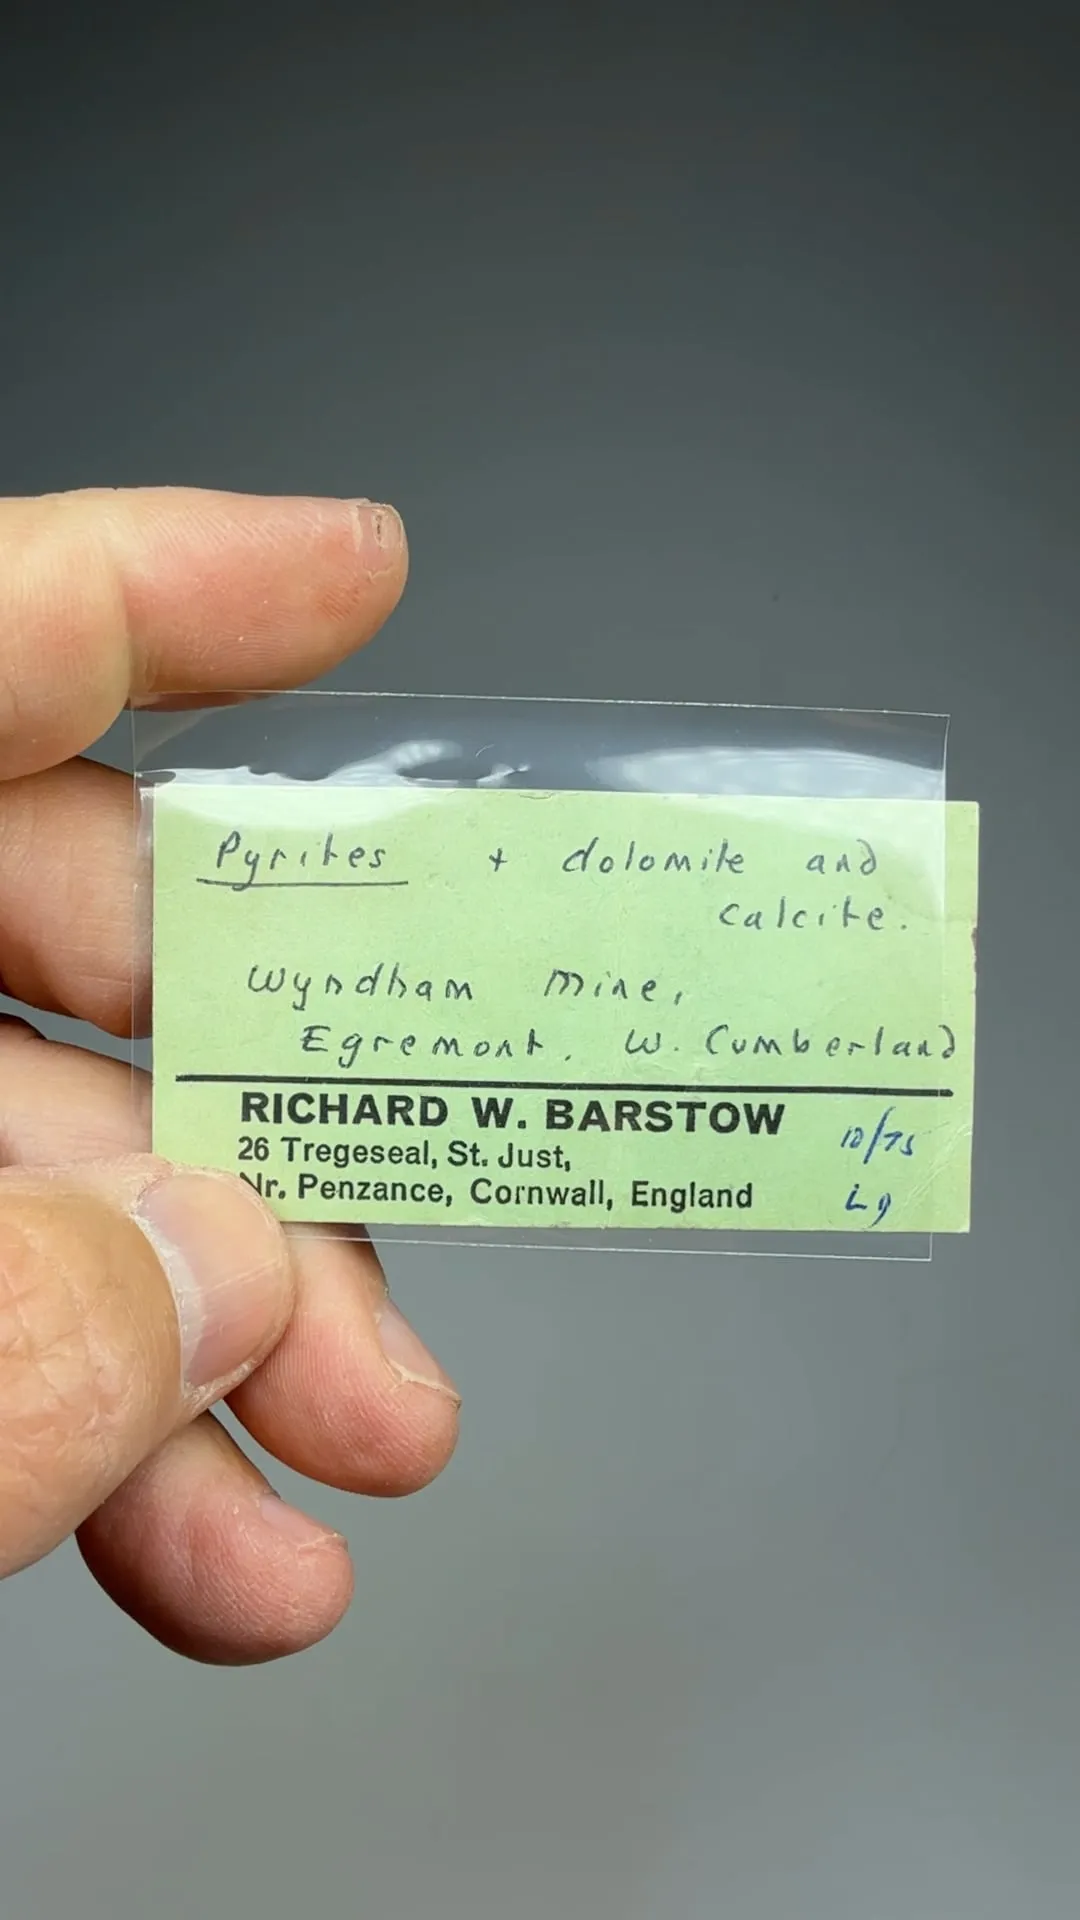 Pyrites + dolomite and
calcite.
Wyndham Mine,
Egremont. W. Cumberland
RICHARD W. BARSTOW
26 Tregeseal, St. Just,
Nr. Penzance, Cornwall, England
10/75